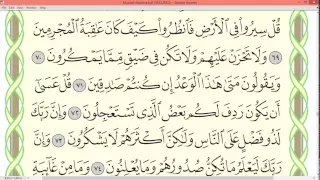 قُلْ سِيرُوا۟ فِى ٱلْأَرْضِ فَٱنظُرُوا۟ كَيْفَ كَانَ عَٰقِبَةُ ٱلْمُجْرِمِينَ
٦٩ وَلَا تَحْزَنْ عَلَيْهِمْ وَلَا تَكُن فِى ضَيْقٍ مِّمَّا يَمْكُرُونَ ٧٠
وَيَقُولُونَ مَتَىٰ هَٰذَا ٱلْوَعْدُ إِن كُنتُمْ صَٰدِقِينَ ٧١ قُلْ عَسَىٰٓ
أَن يَكُونَ رَدِفَ لَكُم بَعْضُ ٱلَّذِى تَسْتَعْجِلُونَ ٧٢ وَإِنَّ رَبَّكَ
لَذُو فَضْلٍ عَلَى ٱلنَّاسِ وَلَٰكِنَّ أَكْثَرَهُمْ لَا يَشْكُرُونَ ٧٣ وَإِنَّ
رَبَّكَ لَيَعْلَمُ مَا تُكِنُّ صُدُورُهُمْ وَمَا يُعْلِنُونَ ٧٤ وَمَا مِنْ غَآئِبَةٍ